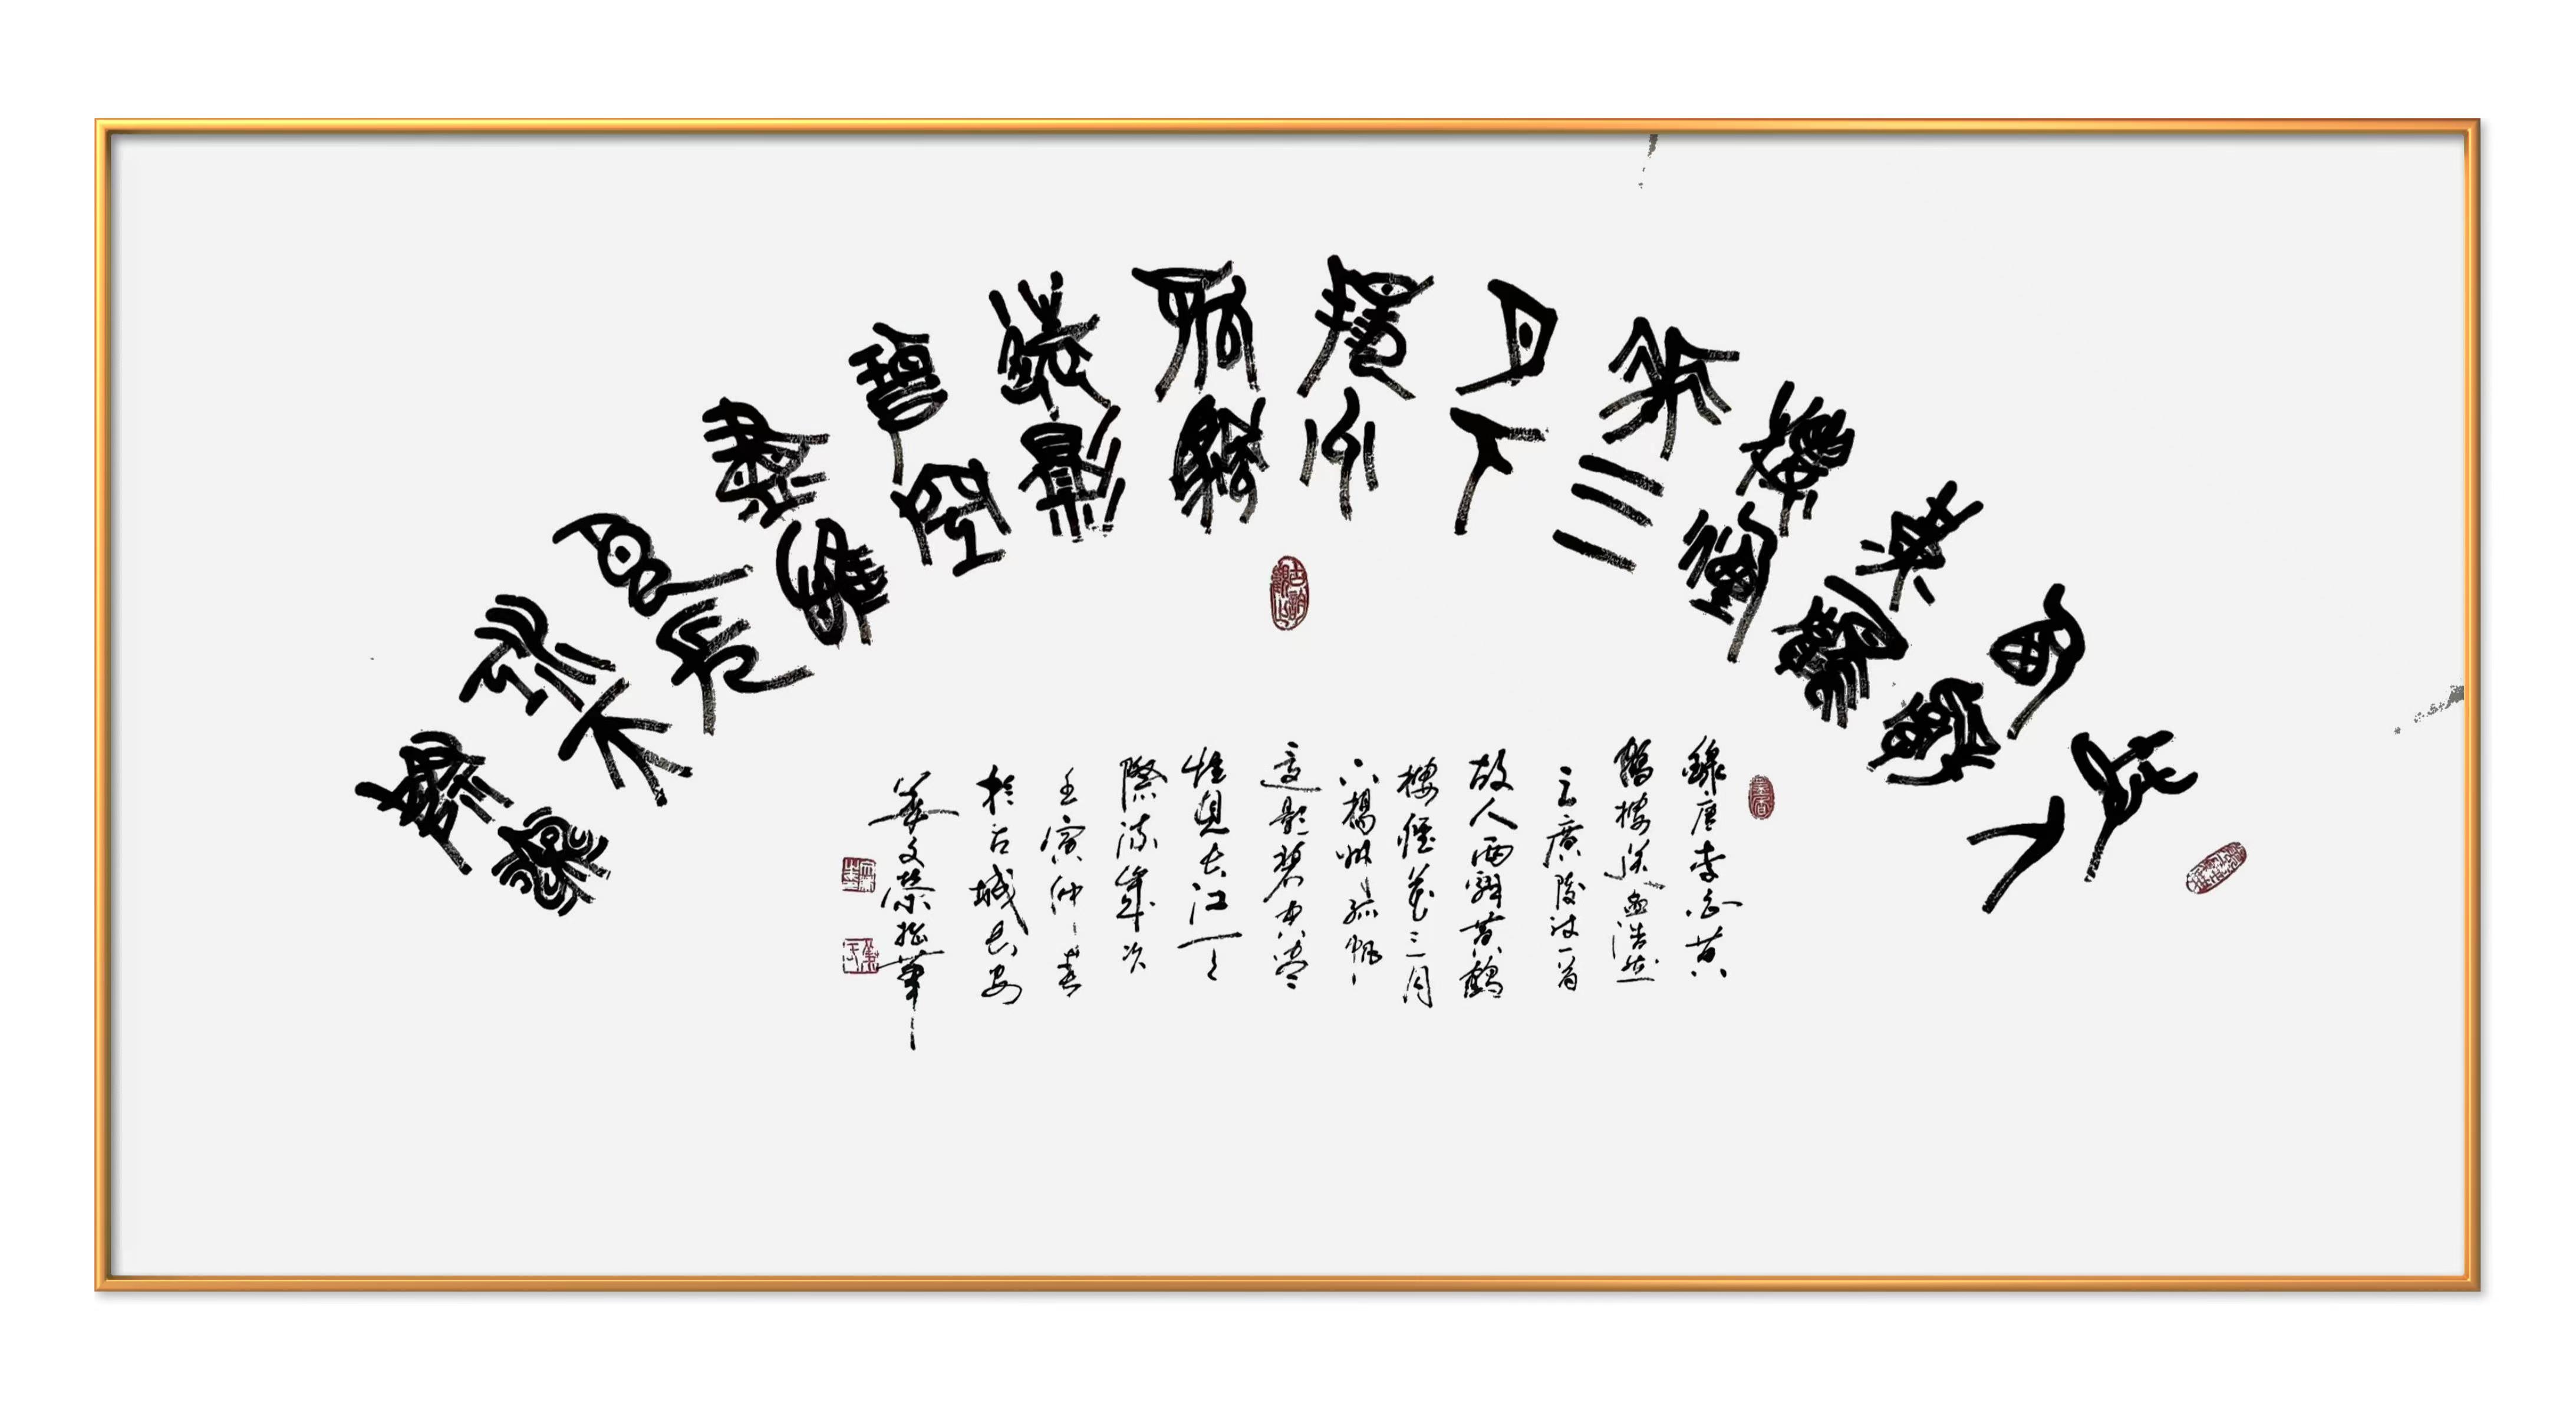 故人
西辭
黃鶴
樓煙
花三
月下
揚州
孤帆
遠影
碧空
盡唯
見長
江天
際流
錄唐李白黃
鶴樓送孟浩然
之廣陵詩一首
故人西辭黃鶴
樓煙花三月
下揚州孤帆
遠影碧空盡
惟見長江天
際流歲次
壬寅仲春
於古城長安
華文榮揮筆